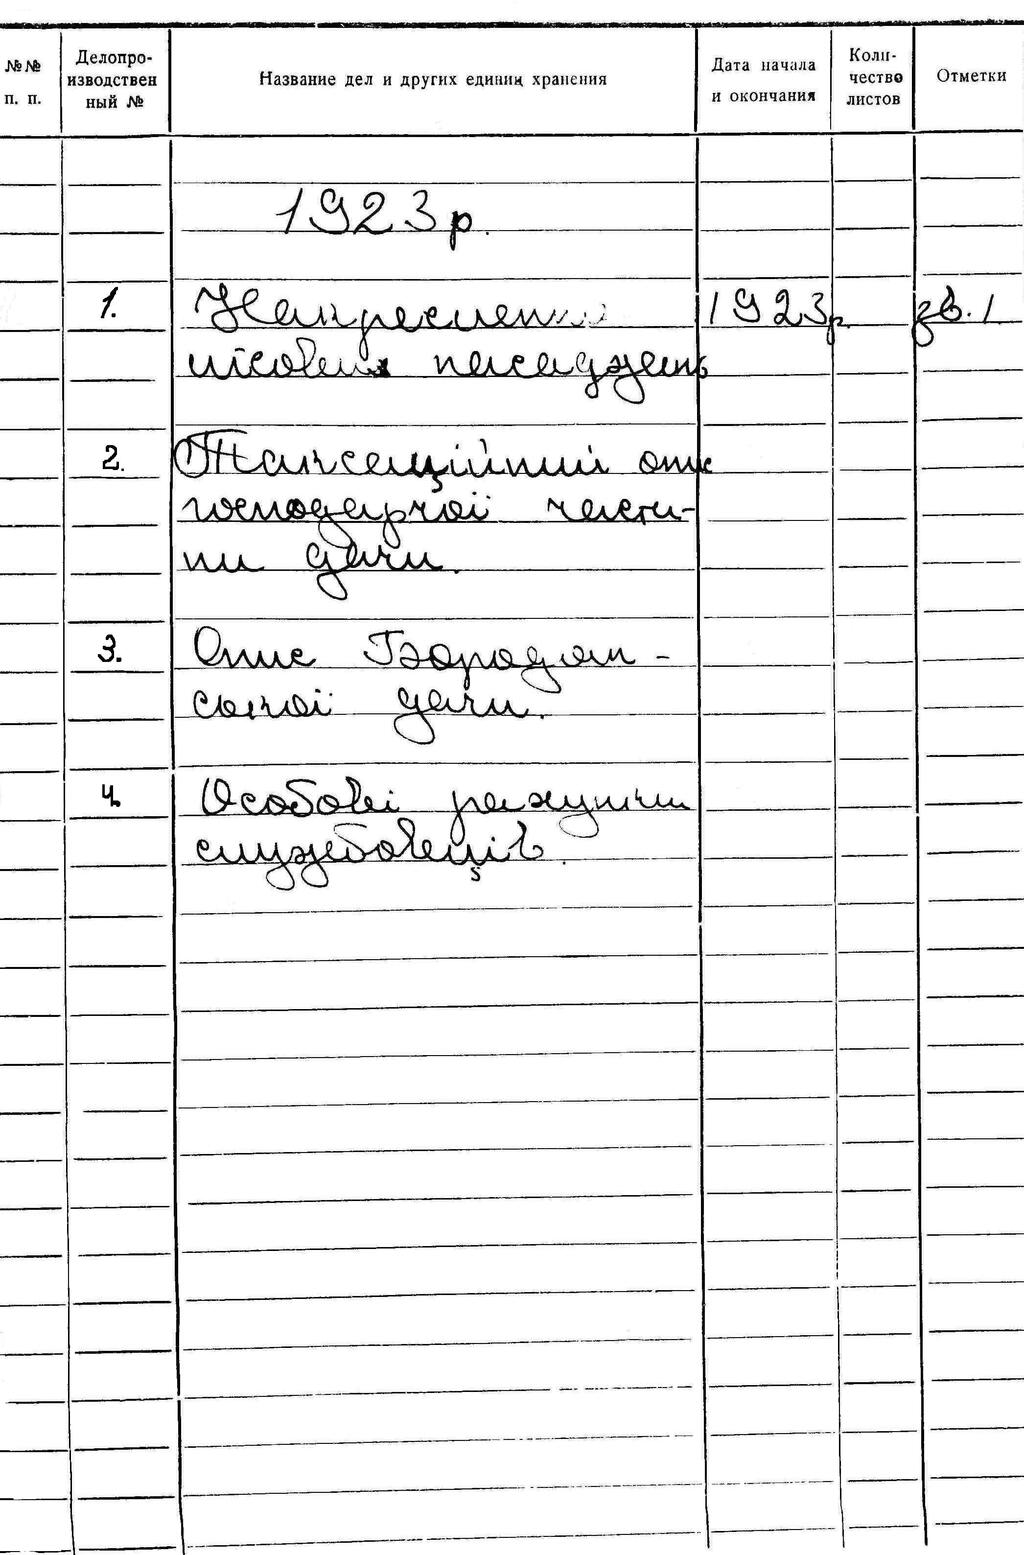 №№ п. п.
Делопро-
изводствен
ный №
Название дел и других единиц хранения
Дата начала
и окончания
Коли-
чество
листов
Отметки
1923 р.
1. Накреслення 1923 р. зв. 1
лісових насаджень
2. Таксаційний опис
господарчої части-
ни дачи.
3. Опис Бородян-
ської дачи.
4. Особові рахунки
службовців.